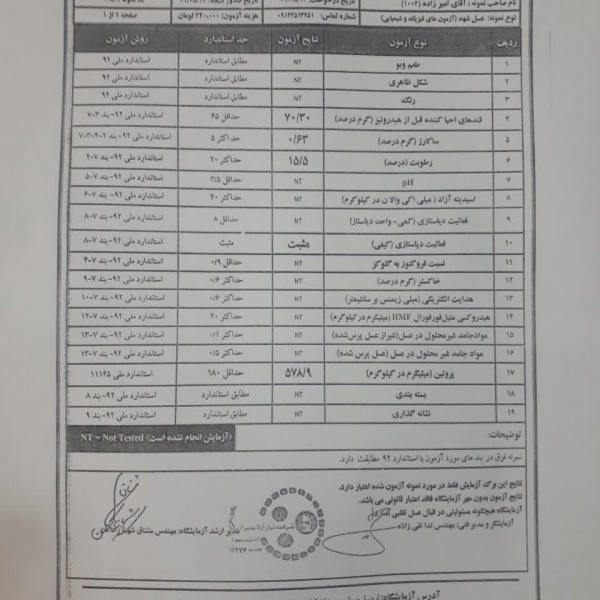 نام صاحب نمونه: آقای امیر زاده (۱۰۰۲)
نوع نمونه: عسل شهد (آزمون های فیزیک و شیمیایی)
شماره تماس: ۰۹۱۴۴۵۱۳۷۵۱
هزینه آزمون: ۳۲۰,۰۰۰ تومان
صفحه ۱ از ۱
ردیف نوع آزمون نتایج آزمون حد استاندارد روش آزمون
۱ طعم وبو NT مطابق استاندارد استاندارد ملی ۹۲
۲ شکل ظاهری NT مطابق استاندارد استاندارد ملی ۹۲
۳ رنگ NT مطابق استاندارد استاندارد ملی ۹۲
۴ قندهای احیا کننده قبل از هیدرولیز (گرم درصد) ۷۰/۳۰ حداقل ۶۵ استاندارد ملی ۹۲- بند ۷-۳
۵ ساکارز (گرم درصد) ۰/۶۳ حداکثر ۵ استاندارد ملی ۹۲- بند ۲-۴-۳-۷
۶ رطوبت (درصد) ۱۵/۵ حداکثر ۲۰ استاندارد ملی ۹۲- بند ۷-۲
۷ pH NT حداقل ۳/۵ استاندارد ملی ۹۲- بند ۷-۵
۸ اسیدیته آزاد (میلی اکی والان در کیلوگرم) NT حداکثر ۴۰ استاندارد ملی ۹۲- بند ۷-۶
۹ فعالیت دیاستازی (کمی- واحد دیاستاز) NT حداقل ۸ استاندارد ملی ۹۲- بند ۷-۸
۱۰ فعالیت دیاستازی (کیفی) مثبت مثبت استاندارد ملی ۹۲- بند ۷-۸
۱۱ نسبت فروکتوز به گلوکز NT حداقل ۰/۹ استاندارد ملی ۹۲- بند ۷-۴
۱۲ خاکستر (گرم درصد) NT حداکثر ۰/۶ استاندارد ملی ۹۲- بند ۷-۹
۱۳ هدایت الکتریکی (میلی زیمنس بر سانتیمتر) NT حداکثر ۰/۸ استاندارد ملی ۹۲- بند ۷-۱۰
۱۴ هیدروکسی متیل فورفورال HMF (میلیگرم در کیلوگرم) NT حداکثر ۴۰ استاندارد ملی ۹۲- بند ۷-۱۲
۱۵ مواد جامد غیر محلول در عسل (غیر از عسل پرس شده) NT حداکثر ۰/۱ استاندارد ملی ۹۲- بند ۷-۱۳
۱۶ مواد جامد غیر محلول در عسل (عسل پرس شده) NT حداکثر ۰/۵ استاندارد ملی ۹۲- بند ۷-۱۳
۱۷ پرولین (میلیگرم در کیلوگرم) ۵۷۸/۹ حداقل ۱۸۰ استاندارد ملی ۱۱۱۴۵
۱۸ بسته بندی NT مطابق استاندارد استاندارد ملی ۹۲- بند ۸
۱۹ نشانه گذاری NT مطابق استاندارد استاندارد ملی ۹۲- بند ۹
توضیحات: NT = Not Tested (آزمایش انجام نشده است)
نمونه فوق در بند های مورد آزمون با استاندارد ۹۲ مطابقت دارد.
نتایج این برگ آزمایش فقط در مورد نمونه آزمون شده اعتبار دارد.
نتایج آزمون بدون مهر آزمایشگاه فاقد اعتبار قانونی می باشد.
آزمایشگاه هیچگونه مسئولیتی در قبال عسل تقلبی ندارد
آنالیگر و مدیر فنی: مهندس ندا تقی زاده
مدیر ارشد آزمایشگاه: مهندس مشتاق
آدرس آزمایشگاه: